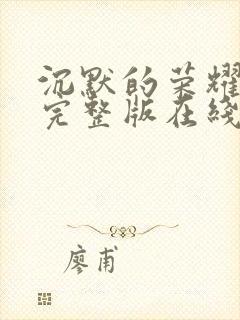 沉默的荣耀
完整版在线
廖甫